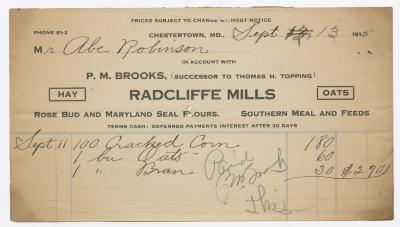 PRICES SUBJECT TO CHANGE WITHOUT NOTICE
PHONE 81-2
CHESTERTOWN, MD., Sept 13 13 1915
Mr. Abe Robinson
IN ACCOUNT WITH
P. M. BROOKS, (SUCCESSOR TO THOMAS H. TOPPING)
HAY RADCLIFFE MILLS OATS
ROSE BUD AND MARYLAND SEAL FLOURS. SOUTHERN MEAL AND FEEDS
TERMS CASH: DEFERRED PAYMENTS INTEREST AFTER 30 DAYS
Sept 11 100 Cracked Corn 180
1 bu Oats 60
1 " Bran 30 $2 70
Paid
this